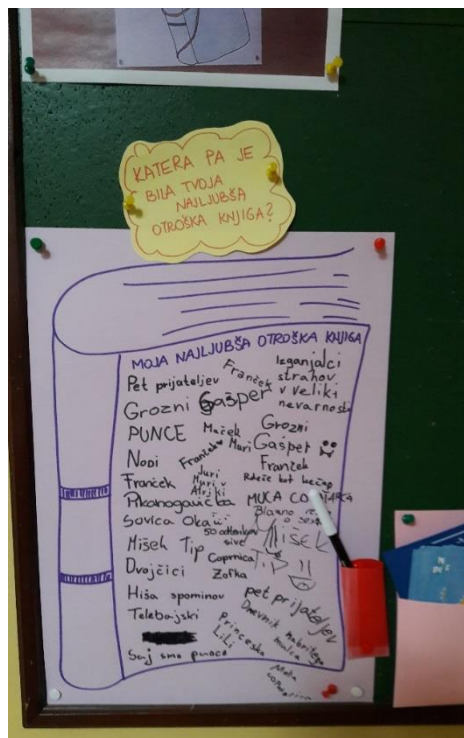 KATERA PA JE
BILA TVOJA
NAJLJUBŠA
OTROŠKA KNJIGA?
MOJA NAJLJUBŠA OTROŠKA KNJIGA
Pet prijateljev
Franček
Izganjalci
strahov
v veliki
nevarnosti
Grozni Gašper
PUNCE
Maček
Muri
Grozni
Gašper
Nodi
Franček
Franček
Franček
Juri
Muri v
Afriki
Rdeče kot kečap
Pikanogavička
MUCA
Sovica Oka
50 odtenkov
sive
Mišek
Mišek Tip
Coprnica
Zofka
Dvojčici
Hiša spominov
pet prijateljev
Telebajski
Princeska
Lili
Dnevnik nabritega
mulca
Saj smo punce
Mala